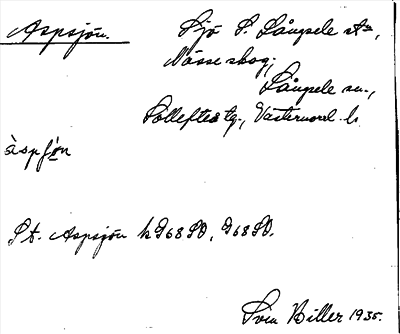 Aspsjön. Sjö S. Långsele stn,
Nässe skog,
Långsele sn.,
Sollefteå tg., Västernorrl. l.
àspʃö̀n
St. Aspsjön k 968 SO, 968 SO.
Sven Biller 1935.